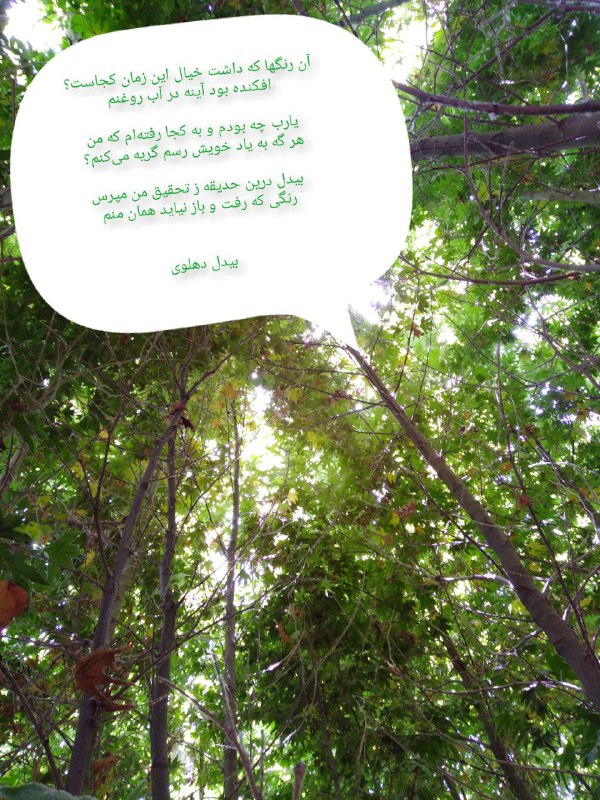 آن رنگها که داشت خیال این زمان کجاست؟
افکنده بود آینه در آب روغنم
یارب چه بودم و به کجا رفته‌ام که من
هر گه به یاد خویش رسم گریه می‌کنم؟
بیدل درین حدیقه ز تحقیق من مپرس
رنگی که رفت و باز نیاید همان منم
بیدل دهلوی